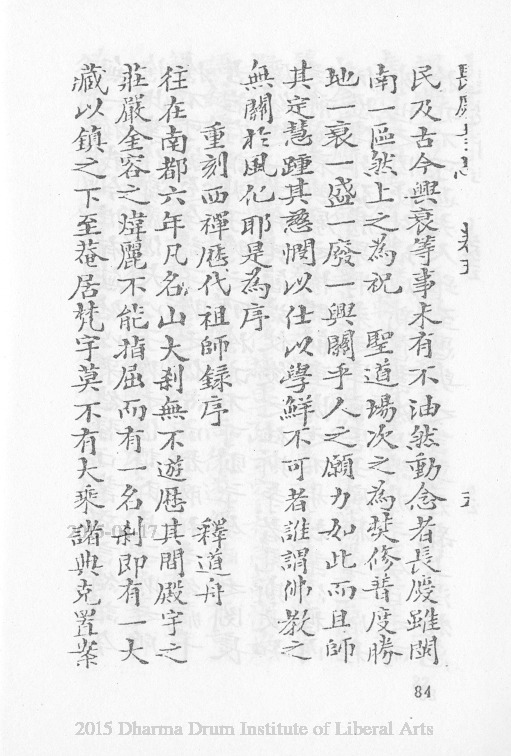 長慶寺志　卷五　五
民及古今興衰等事未有不油然動念者長慶雖閩
南一區然上之為祝　聖道場次之為焚修普度勝
地一衰一盛一廢一興關乎人之願力如此而且師
其定慧踵其慈憫以仕以學鮮不可者誰謂佛教之
無關於風化耶是為序
重刻西禪歷代祖師錄序　釋道舟
往在南都六年凡名山大剎無不遊歷其間殿宇之
莊嚴金容之煒麗不能指屈而有一名剎即有一大
藏以鎮之下至菴居梵宇莫不有大乘諸典充置案
84
2015 Dharma Drum Institute of Liberal Arts